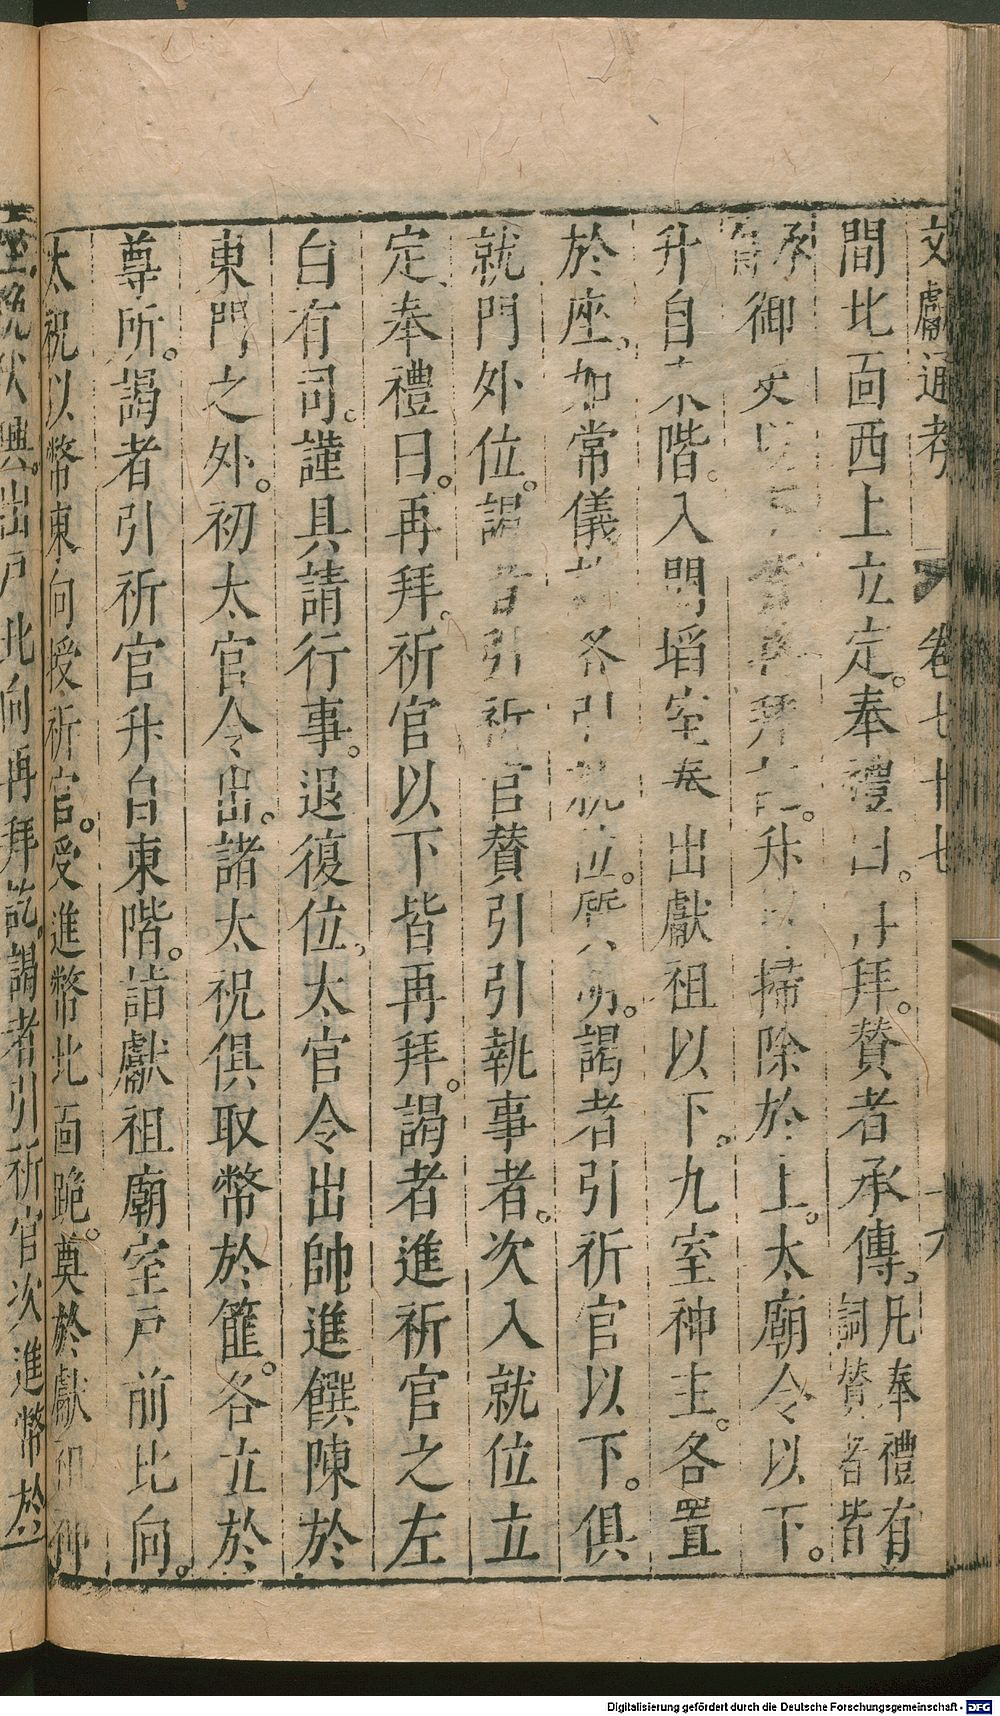 文獻通考 卷七十七 十六
間北面西上立定。奉禮曰。再拜。贊者承傳。凡奉禮有詞贊者皆
承御史以下皆再拜訖。升掃除於上。太廟令以下。
升自東階。入開埳室奉出獻祖以下。九室神主。各置
於座。如常儀各引就位。謁者引祈官以下。俱
就門外位。謁者引祈官贊引引執事者。次入就位立
定、奉禮曰。再拜。祈官以下皆再拜。謁者進祈官之左
白有司。謹具請行事。退復位、太官令出帥進饌陳於
東門之外。初太官令出。諸太祝俱取幣於篚。各立於
尊所。謁者引祈官升自東階。詣獻祖廟室戶前北向。
太祝以幣東向授祈官。受進幣北面跪。奠於獻祖神
俛伏興。出戶北向再拜訖。謁者引祈官次進幣於
Digitalisierung gefördert durch die Deutsche Forschungsgemeinschaft - DFG